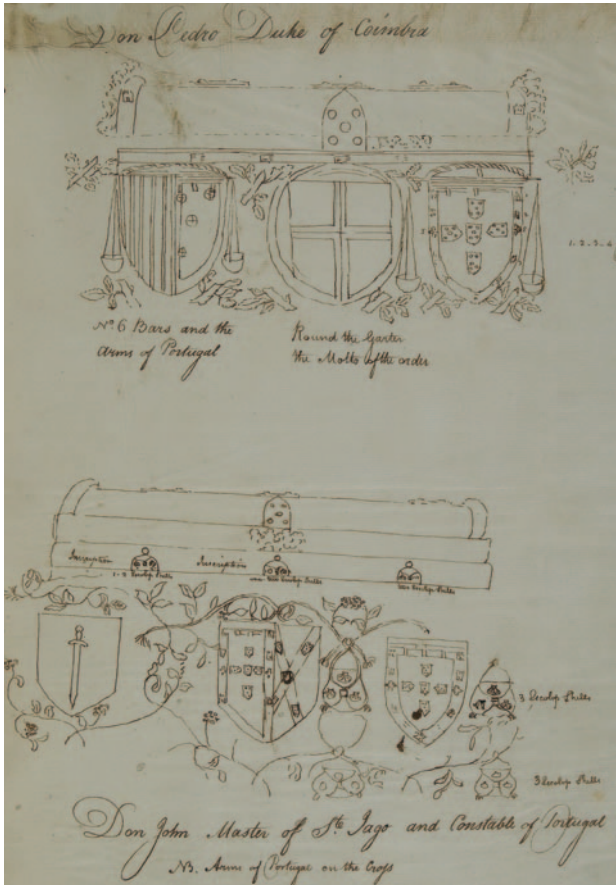 Don Pedro Duke of Coimbra
1. 2. 3. 4
No. 6 Bars and the
Arms of Portugal
Round the Garter
the Motto of the order
Inscription
Inscription
Scallop Shells
Scallop Shells
Scallop Shells
3 Scallop Shells
3 Scallop Shells
Don John Master of St. Jago and Constable of Portugal
NB. Arms of Portugal on the Cross